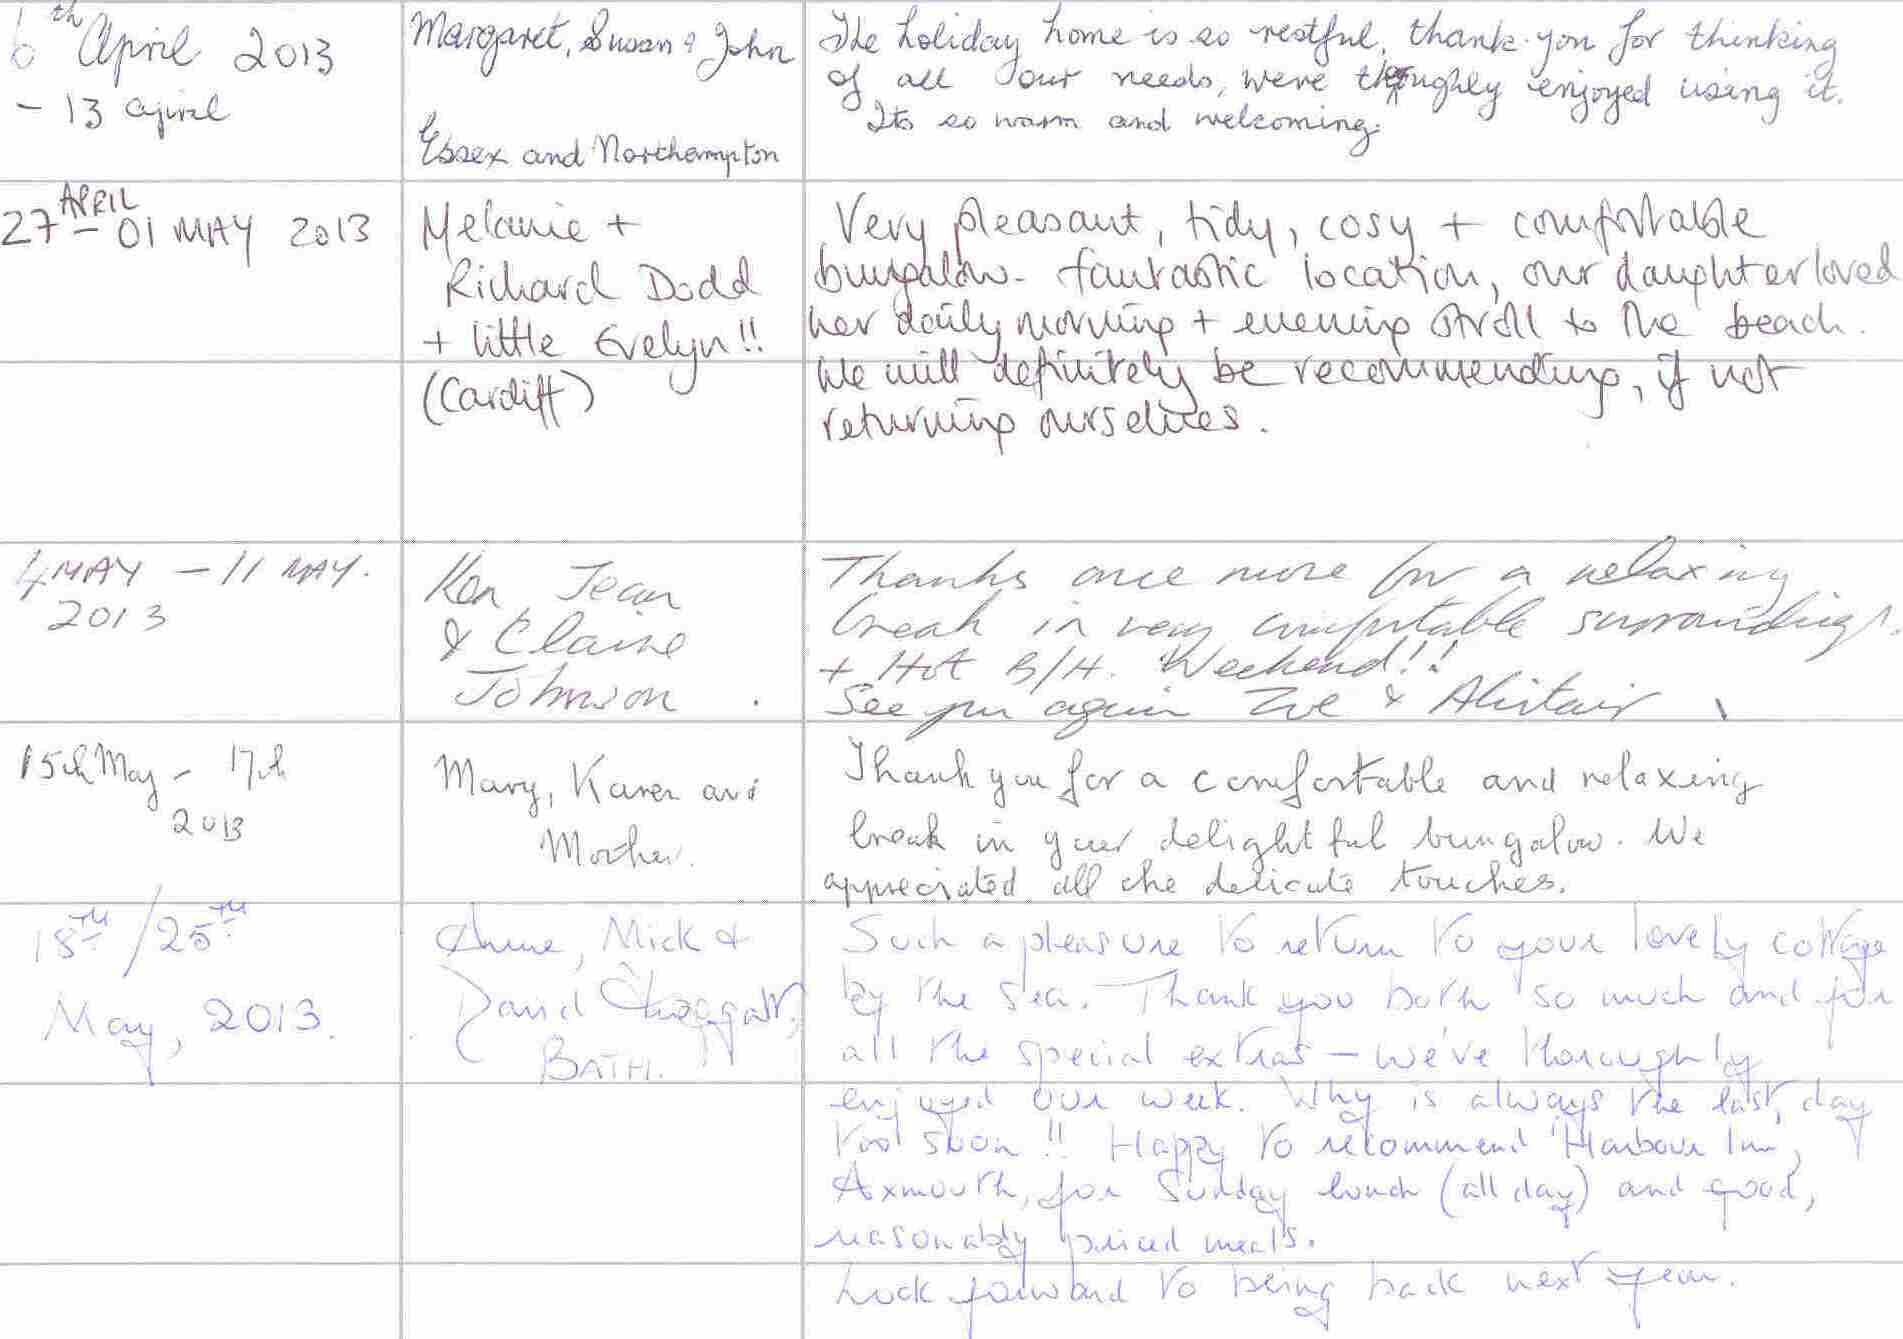 6th April 2013
- 13 april
Margaret, Susan & John
Essex and Northampton
The holiday home is so restful, thank-you for thinking
of all our needs, we've thoroughly enjoyed using it.
Its so warm and welcoming.
27 APRIL - 01 MAY 2013
Melanie +
Richard Dodd
+ little Evelyn!!
(Cardiff)
Very pleasant, tidy, cosy + comfortable
bungalow - fantastic location, our daughter loved
her daily morning + evening stroll to the beach.
We will definitely be recommending, if not
returning ourselves.
4 MAY - 11 MAY.
2013
Ken Jean
& Claire
Johnson.
Thanks once more for a relaxing
break in very comfortable surroundings.
+ Hot B/H. Weekend!!
See you again Zoe & Alistair
15th May - 17th
2013
Mary, Karen and
Mother.
Thank you for a comfortable and relaxing
break in your delightful bungalow. We
appreciated all the delicate touches.
18TH/25TH
May, 2013.
Anne, Mick &
David
BATH.
Such a pleasure to return to your lovely cottage
by the sea. Thank you both so much and for
all the special extras - we've thoroughly
enjoyed our week. Why is always the last day
too soon!! Happy to recommend 'Harbour Inn,
Axmouth, for Sunday lunch (all day) and good,
reasonably priced meals.
Look forward to being back next year.